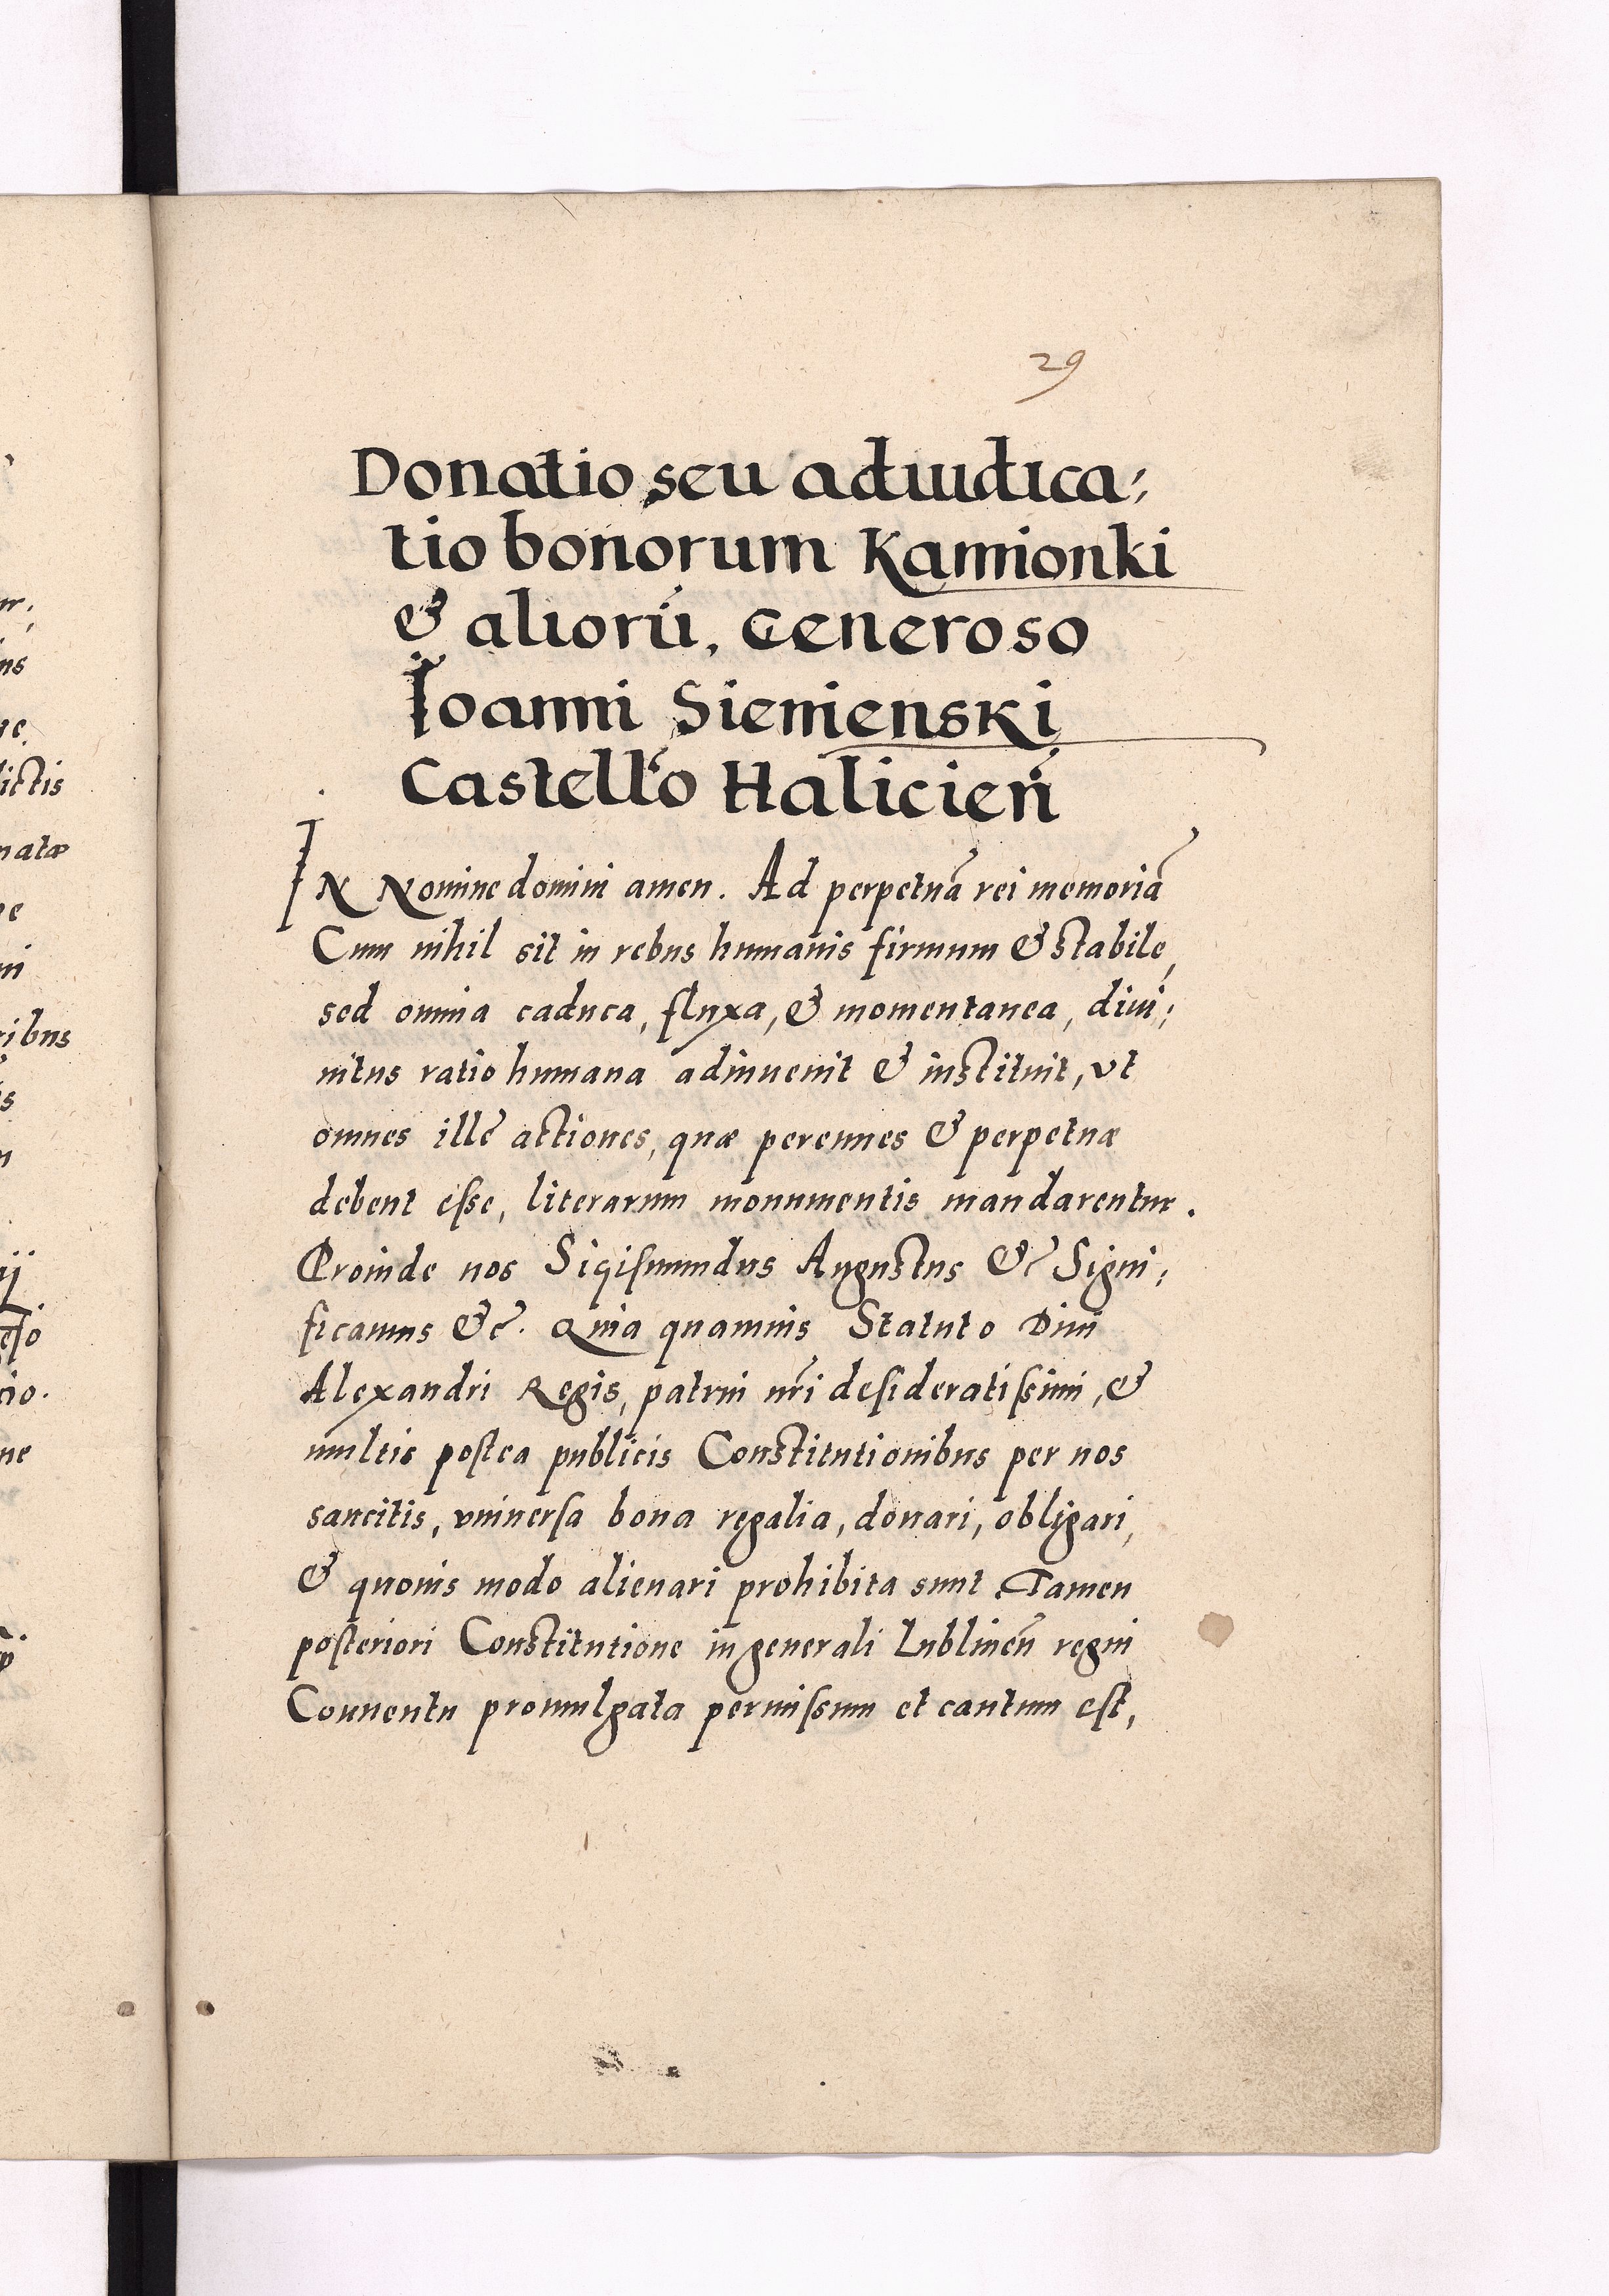 29
Donatio seu adiudica;
tio bonorum Kamionki
& aliorũ, Generoso
Ioanni Siemenski
Castell'o Halicien̄
IN Nomine domini amen. Ad perpetuā rei memoriā
Cum nihil sit in rebus humanis firmum & stabile,
sed omnia caduca, fluxa, & momentanea, diui;
nitus ratio humana adinuenit & instituit, vt
omnes ille actiones, quæ perennes & perpetuæ
debent eſse, literarum monumentis mandarentur.
Proinde nos Sigiſmundus Augustus &c Signi;
ficamus &c. Quia quamuis Statuto Diui
Alexandri Regis, patrui nr̄i deſideratiſsimi, &
multis poſtea publicis Constitutionibus per nos
sancitis, vniuerſa bona regalia, donari, obligari,
& quouis modo alienari prohibita sunt Tamen
poſteriori Constitutione in generali Lublineñ regni
Conuentu promulgata permiſsum et cautum eſt,